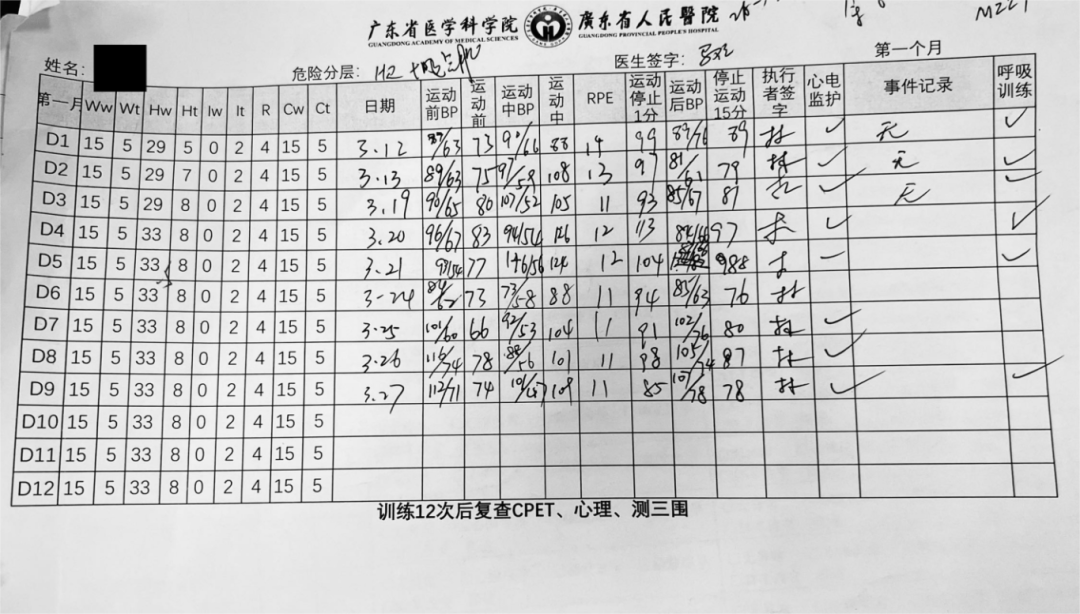 广东省医学科学院 廣東省人民醫院
GUANGDONG ACADEMY OF MEDICAL SCIENCES GUANGDONG PROVINCIAL PEOPLE'S HOSPITAL
姓名： 危险分层： 医生签字： 第一个月
第一月 Ww Wt Hw Ht Iw It R Cw Ct 日期 运动前BP 运动前 运动中BP 运动中 RPE 运动停止1分 运动后BP 停止运动15分 执行者签字 心电监护 事件记录 呼吸训练
D1 15 5 29 5 0 2 4 15 5 3.12 /63 73 90/66 88 14 99 89/76 89 林 ✓ 无 ✓
D2 15 5 29 7 0 2 4 15 5 3.13 89/63 75 97/59 108 13 97 81/61 79 林 ✓ 无 ✓
D3 15 5 29 8 0 2 4 15 5 3.19 90/65 80 107/52 105 11 93 85/67 81 ✓ 无 ✓
D4 15 5 33 8 0 2 4 15 5 3.20 96/67 83 94/54 126 12 113 84/66 97 ✓ ✓
D5 15 5 33 8 0 2 4 15 5 3.21 93/54 77 124 12 104 88 ✓ ✓
D6 15 5 33 8 0 2 4 15 5 3-24 84/62 73 73/58 88 11 94 85/63 76 林
D7 15 5 33 8 0 2 4 15 5 3.25 101/60 66 92/53 104 11 91 102/76 80 林 ✓
D8 15 5 33 8 0 2 4 15 5 3.26 116/74 78 88/56 101 11 98 105/74 87 林 ✓
D9 15 5 33 8 0 2 4 15 5 3.27 112/71 74 101/47 109 11 85 107/78 78 林 ✓ ✓
D10 15 5 33 8 0 2 4 15 5
D11 15 5 33 8 0 2 4 15 5
D12 15 5 33 8 0 2 4 15 5
训练12次后复查CPET、心理、测三围